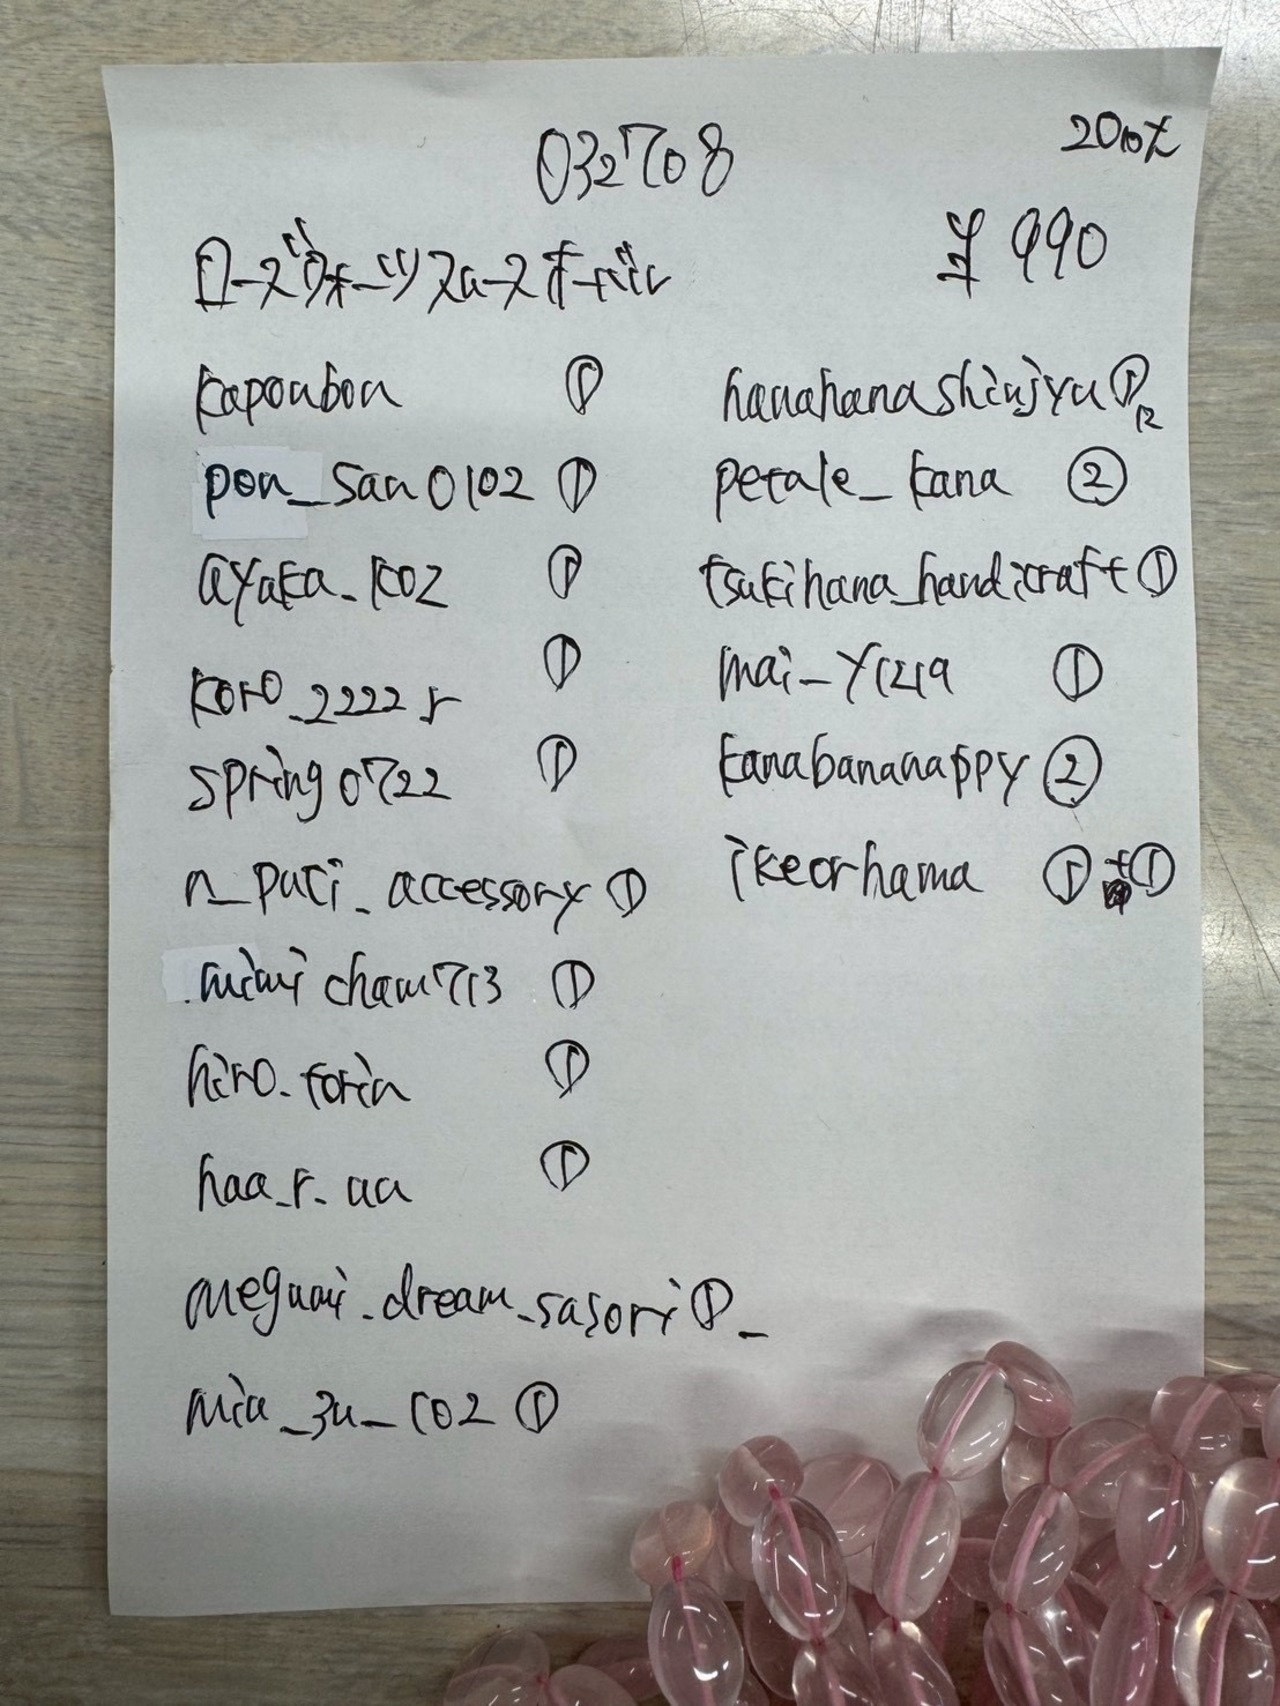 032708
2000点
ローズクォーツスムースオーバル
¥990
kaponbon ①
pon_san0102 ①
ayaka_ko2 ①
koro_2222r ①
spring0722 ①
n_puti_accessory ①
.mimicham713 ①
hiro.torin ①
haa_r_aa ①
megumi.dream_sasori ①_
min_3u_co2 ①
hanahanashinjyu ①12
petale_kana ②
tsukihana_handicraft ①
mai_y1219 ①
kanabananappy ②
ikeorhama ①+①